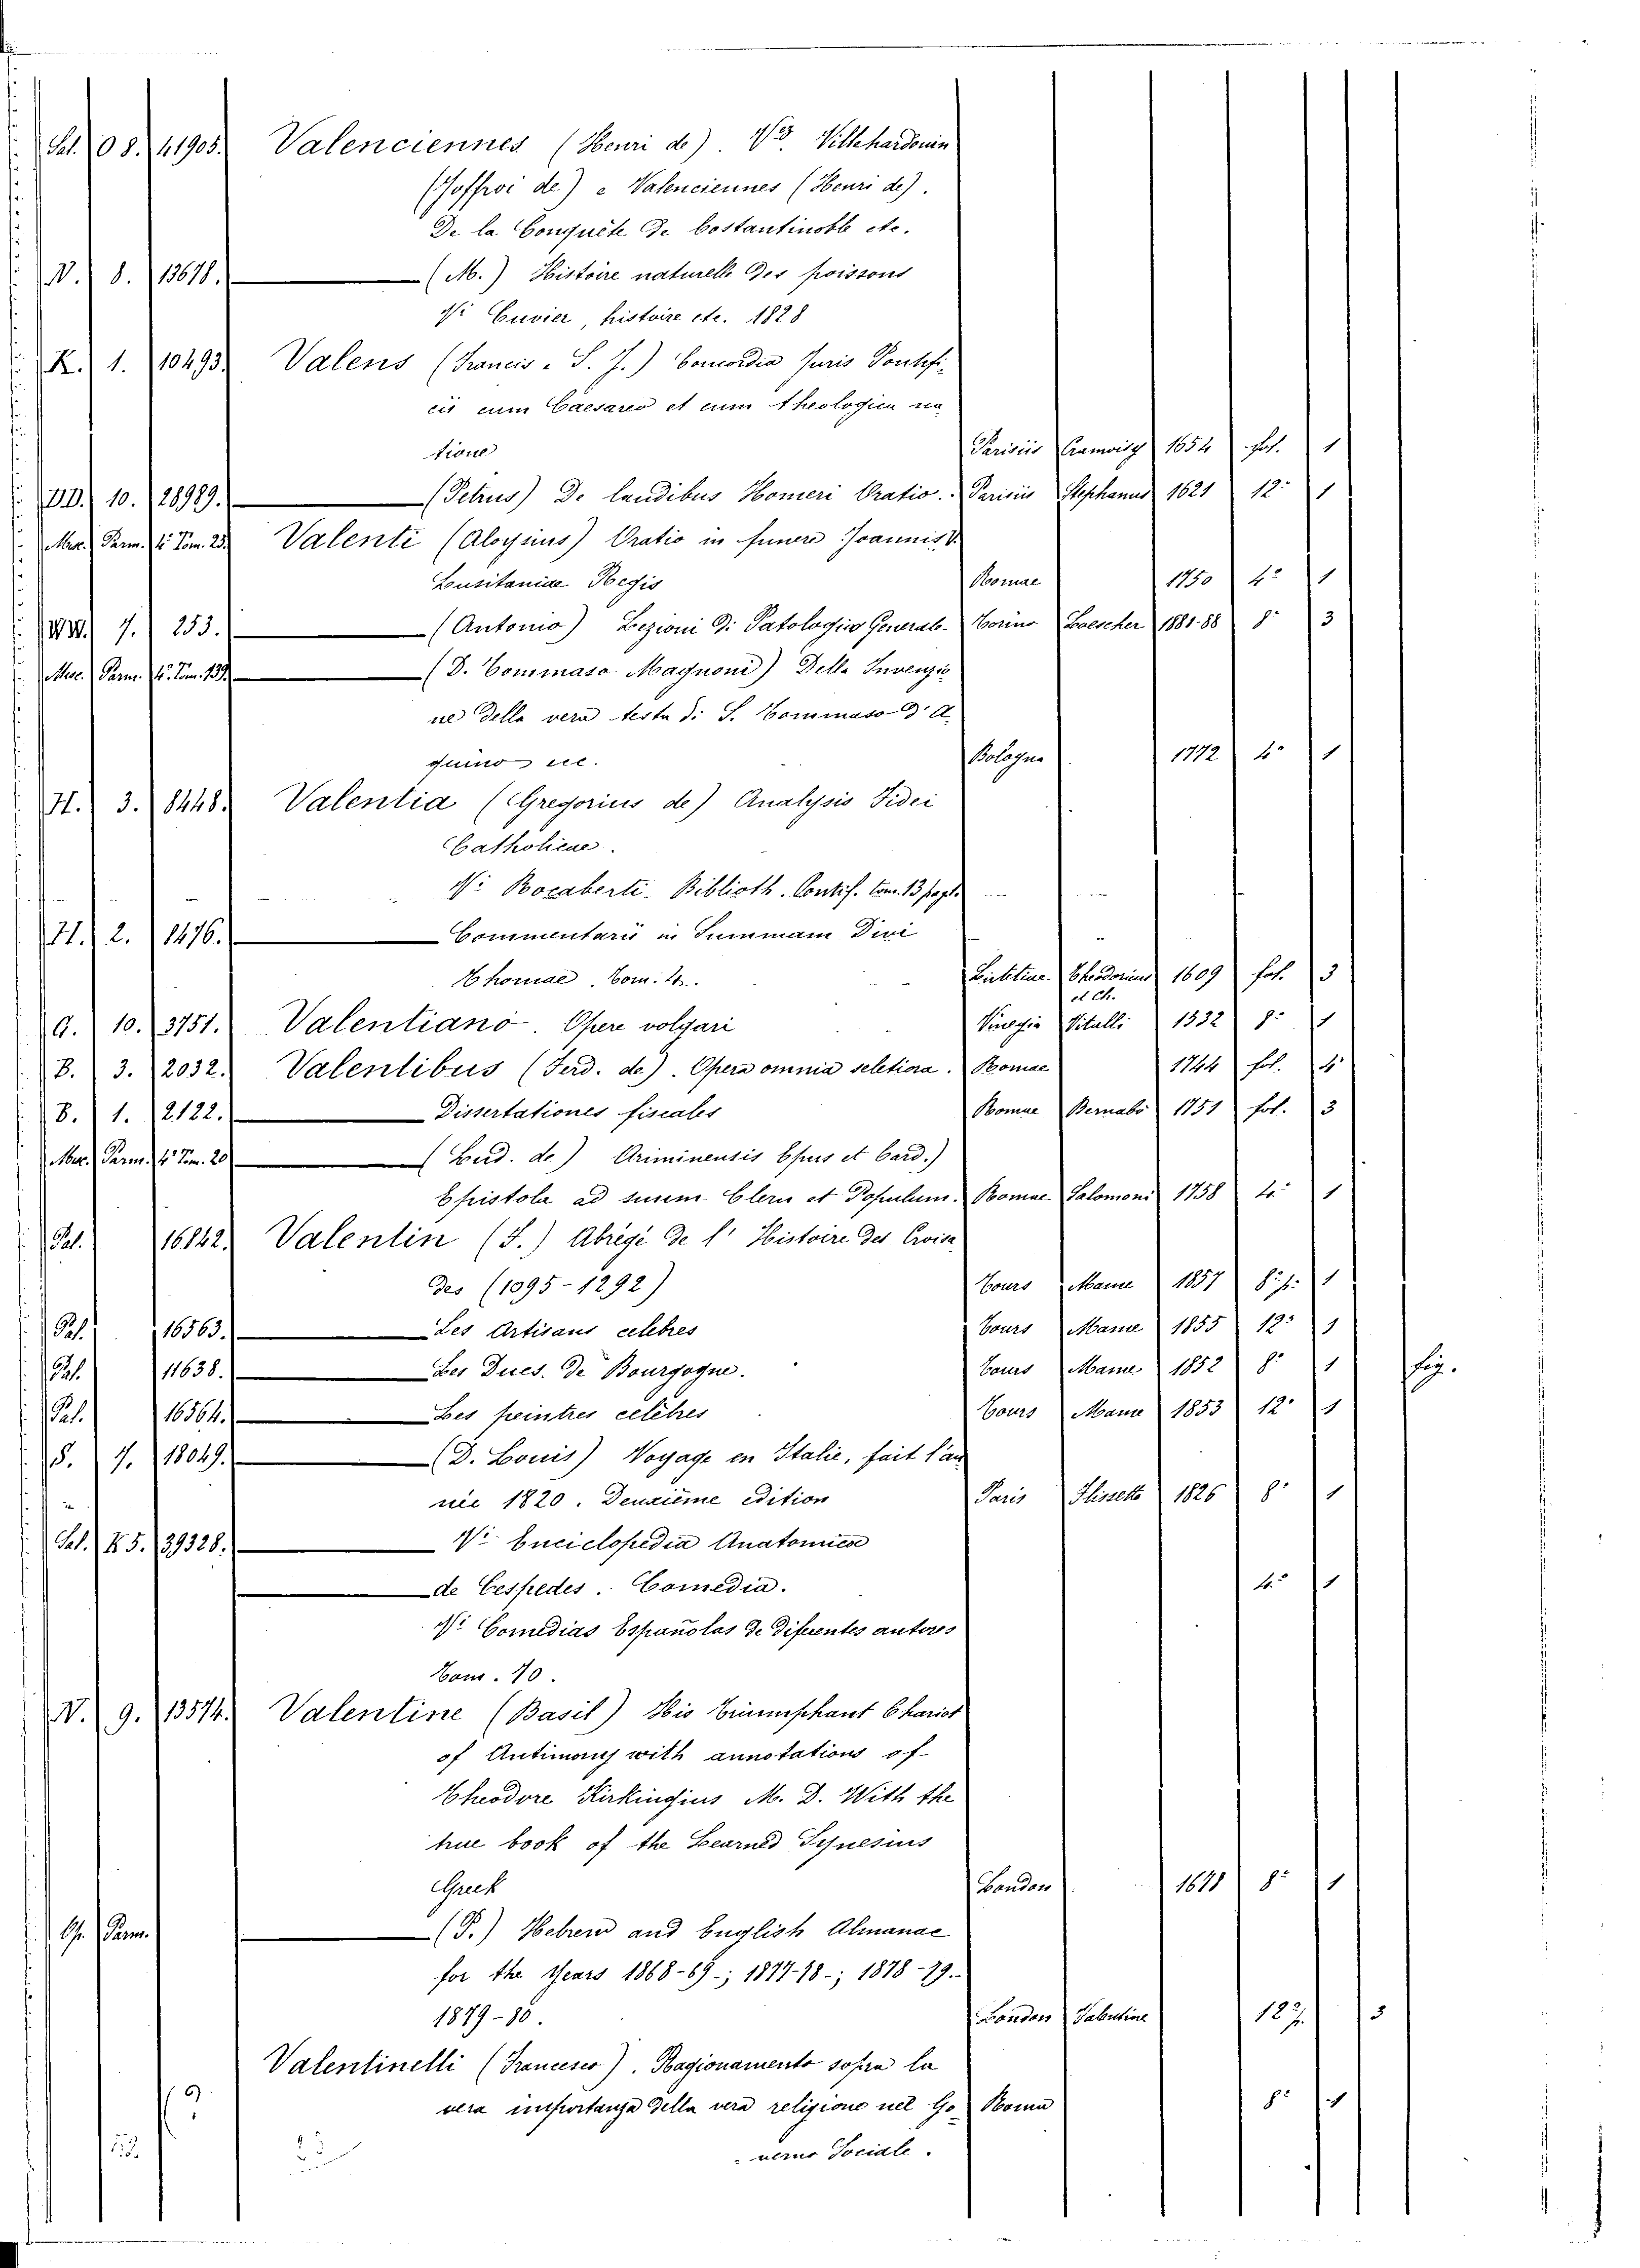 Sal. O 8. 41905. Valenciennes (Henri de). Vd. Villehardouin
(Joffroi de) e Valenciennes (Henri de).
De la Conquête de Costantinoble etc.
N. 8. 13678. (M.) Histoire naturelle des poissons
Vi Cuvier, histoire etc. 1828
K. 1. 10493. Valens (Francis. S. J.) Concordia Juris Pontifi-
cis cum Caesareo et cum theologica ra
tione Parisiis Cramoisy 1654 fol. 1
DD. 10. 28989. (Petrus) De laudibus Homeri Oratio. Parisiis Stephanus 1621 12º 1
Misc. Parm. 4º Tom. 25. Valenti (Aloysius) Oratio in funere Joannis V.
Lusitaniae Regis Romae 1750 4º 1
WW. 7. 253. (Antonio) Lezioni di Patologia Generale. Torino Loescher 1881-88 8º 3
Misc. Parm. 4º. Tom. 139. (D. Tommaso Magnoni) Della Invenzio
ne della vera testa di S. Tommaso d'A.
quino ecc. Bologna 1772 4º 1
H. 3. 8448. Valentia (Gregorius de) Analysis Fidei
Catholicae.
Vi Rocaberti. Biblioth. Pontif. tom. 13 pag.
H. 2. 1476. Commentarii in Summam Divi
Thomae. Tom. 4. Lutetiae Theodoricus 1609 fol. 3
et Ch.
G. 10. 3751. Valentiano. Opere volgari Vinegia Vitalli 1532 8º 1
B. 3. 2032. Valentibus (Ferd. de). Opera omnia seletiora. Romae 1744 fol. 4
B. 1. 2122. Dissertationes fiscales Romae Bernabò 1751 fol. 3
Misc. Parm. 4º Tom. 20 (Lud. de) Ariminensis Epus et Card.)
Epistola ad suum Clerum et Populum. Romae Salomoni 1758 4º 1
Pal. 16842. Valentin (F.) Abrégé de l'Histoire des Croisa
des (1095-1292) Tours Mame 1857 8º p. 1
Pal. 16563. Les Artisans celebres Tours Mame 1855 12º 1
Pal. 11638. Les Ducs. de Bourgogne. Tours Mame 1852 8º 1 fig.
Pal. 16564. Les peintres celebres Tours Mame 1853 12º 1
S. 7. 18049. (D. Louis) Voyage en Italie, fait l'an
née 1820. Deuxième édition Paris 1826 8º 1
Vi Enciclopedia Anatomica
Sal. K 5. 39328. de Cespedes. Comedia. 4º 1
Vi Comedias Españolas de diferentes autores
Tom. 10.
N. 9. 13574. Valentine (Basil) His Triumphant Chariot
of Antimony with annotations of
Theodore Kirkingius M. D. With the
true book of the Learned Synesius
Greek London 1678 8º 1
Or. Parm. (P.) Hebrew and English Almanac
for the Years 1868-69-; 1877-78-; 1878-79.-
1879-80. London Valentine 12º p. 3
Valentinelli (Francesco). Ragionamento sopra la
vera importanza della vera religione nel Go- Roma 8º 1
verno Sociale.